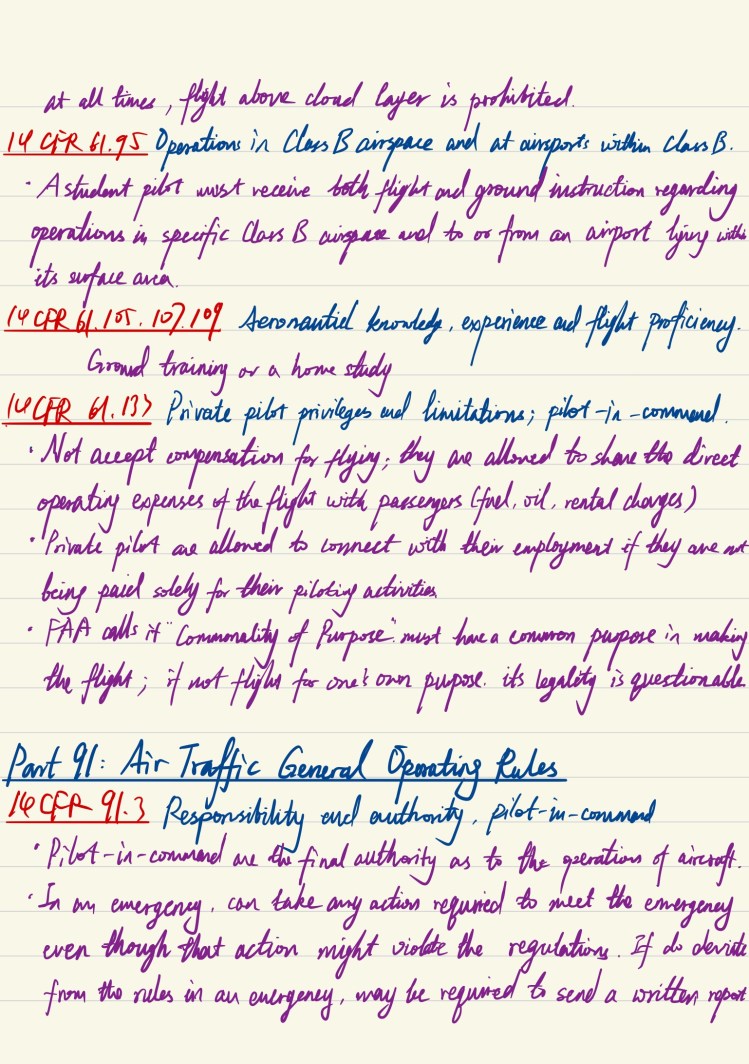 at all times, flight above cloud layer is prohibited.
14 CFR 61.95 Operations in Class B airspace and at airsports within Class B.
· A student pilot must receive both flight and ground instruction regarding
operations in specific Class B airspace and to or from an airport lying within
its surface area.
14 CFR 61.105. 107. 109 Aeronautical knowledge, experience and flight proficiency.
Ground training or a home study
14 CFR 61.133 Private pilot privileges and limitations; pilot-in-command.
· Not accept compensation for flying; they are allowed to share the direct
operating expenses of the flight with passengers (fuel, oil, rental charges)
· Private pilot are allowed to connect with their employment if they are not
being paid solely for their piloting activities
· FAA calls it "Commonality of Purpose" must have a common purpose in making
the flight; if not flight for one's own purpose. its legality is questionable
Part 91: Air Traffic General Operating Rules
14 CFR 91.3 Responsibility and authority, pilot-in-command
· Pilot-in-command are the final authority as to the operations of aircraft.
· In an emergency, can take any action required to meet the emergency
even though that action might violate the regulations. If do deviate
from the rules in an emergency, may be required to send a written report